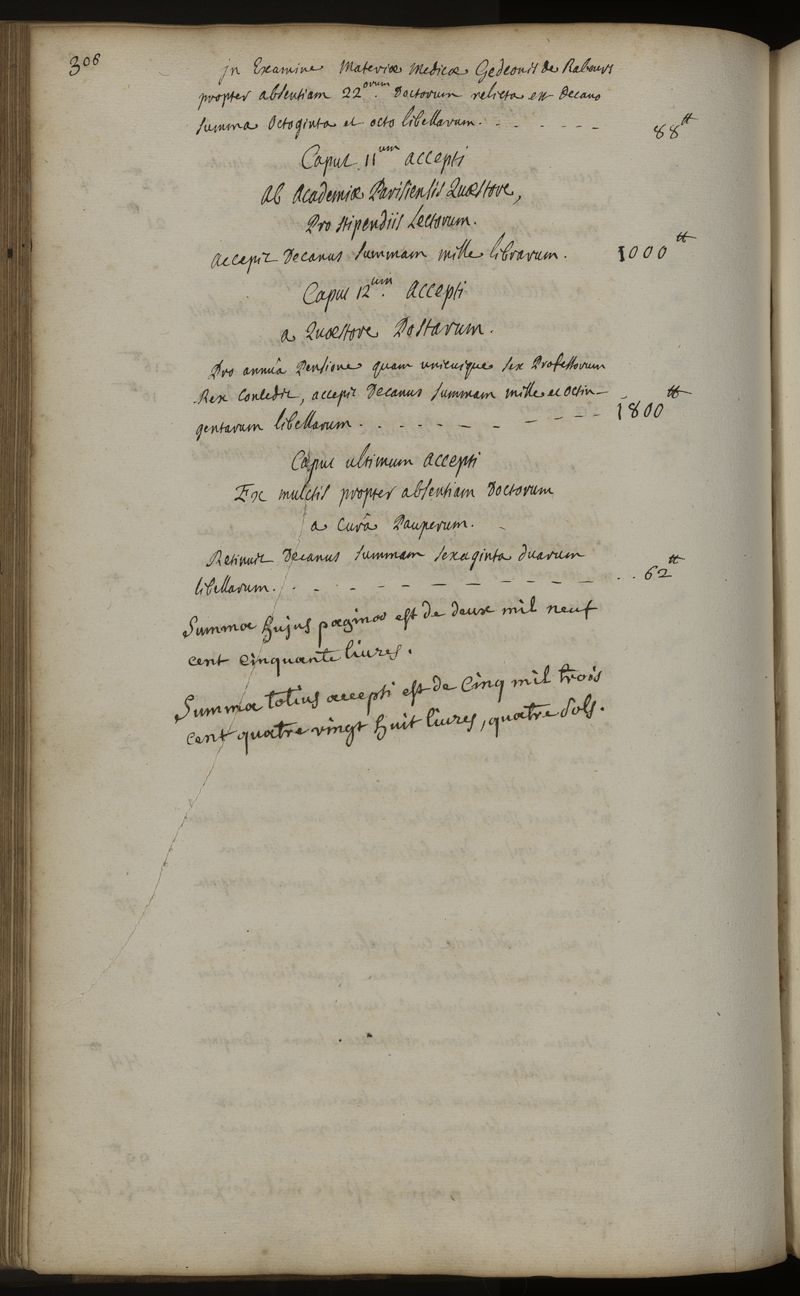 306
In Examine Materiæ Medicæ Gedeonis de Rabours
propter absentiam 22orum. Doctorum relicta est Decano
summa octoginta et octo libellarum. 88tt
Caput 11um accepti
ab Academiæ Parisiensis Quæstore,
Pro stipendiis Lectorum.
accepit Decanus summam mille librarum. 1000tt
Caput 12um. accepti
a Quæstore Postarum.
Pro annuâ Pensione quam unicuique sex Professorum
Rex Concedit, accepit Decanus summam mille et octin-
gentarum libellarum 1800tt
Caput ultimum accepti
Ex mulctis propter absentiam Doctorum
a Curâ Pauperum.
Retinuit Decanus summam sexaginta duarum
libellarum. 62tt
Summa hujus paginæ est de deux mil neuf
cent cinquante livres.
Summa totius accepti est de Cinq mil trois
cent quatre vingt huit livres, quatre sols.